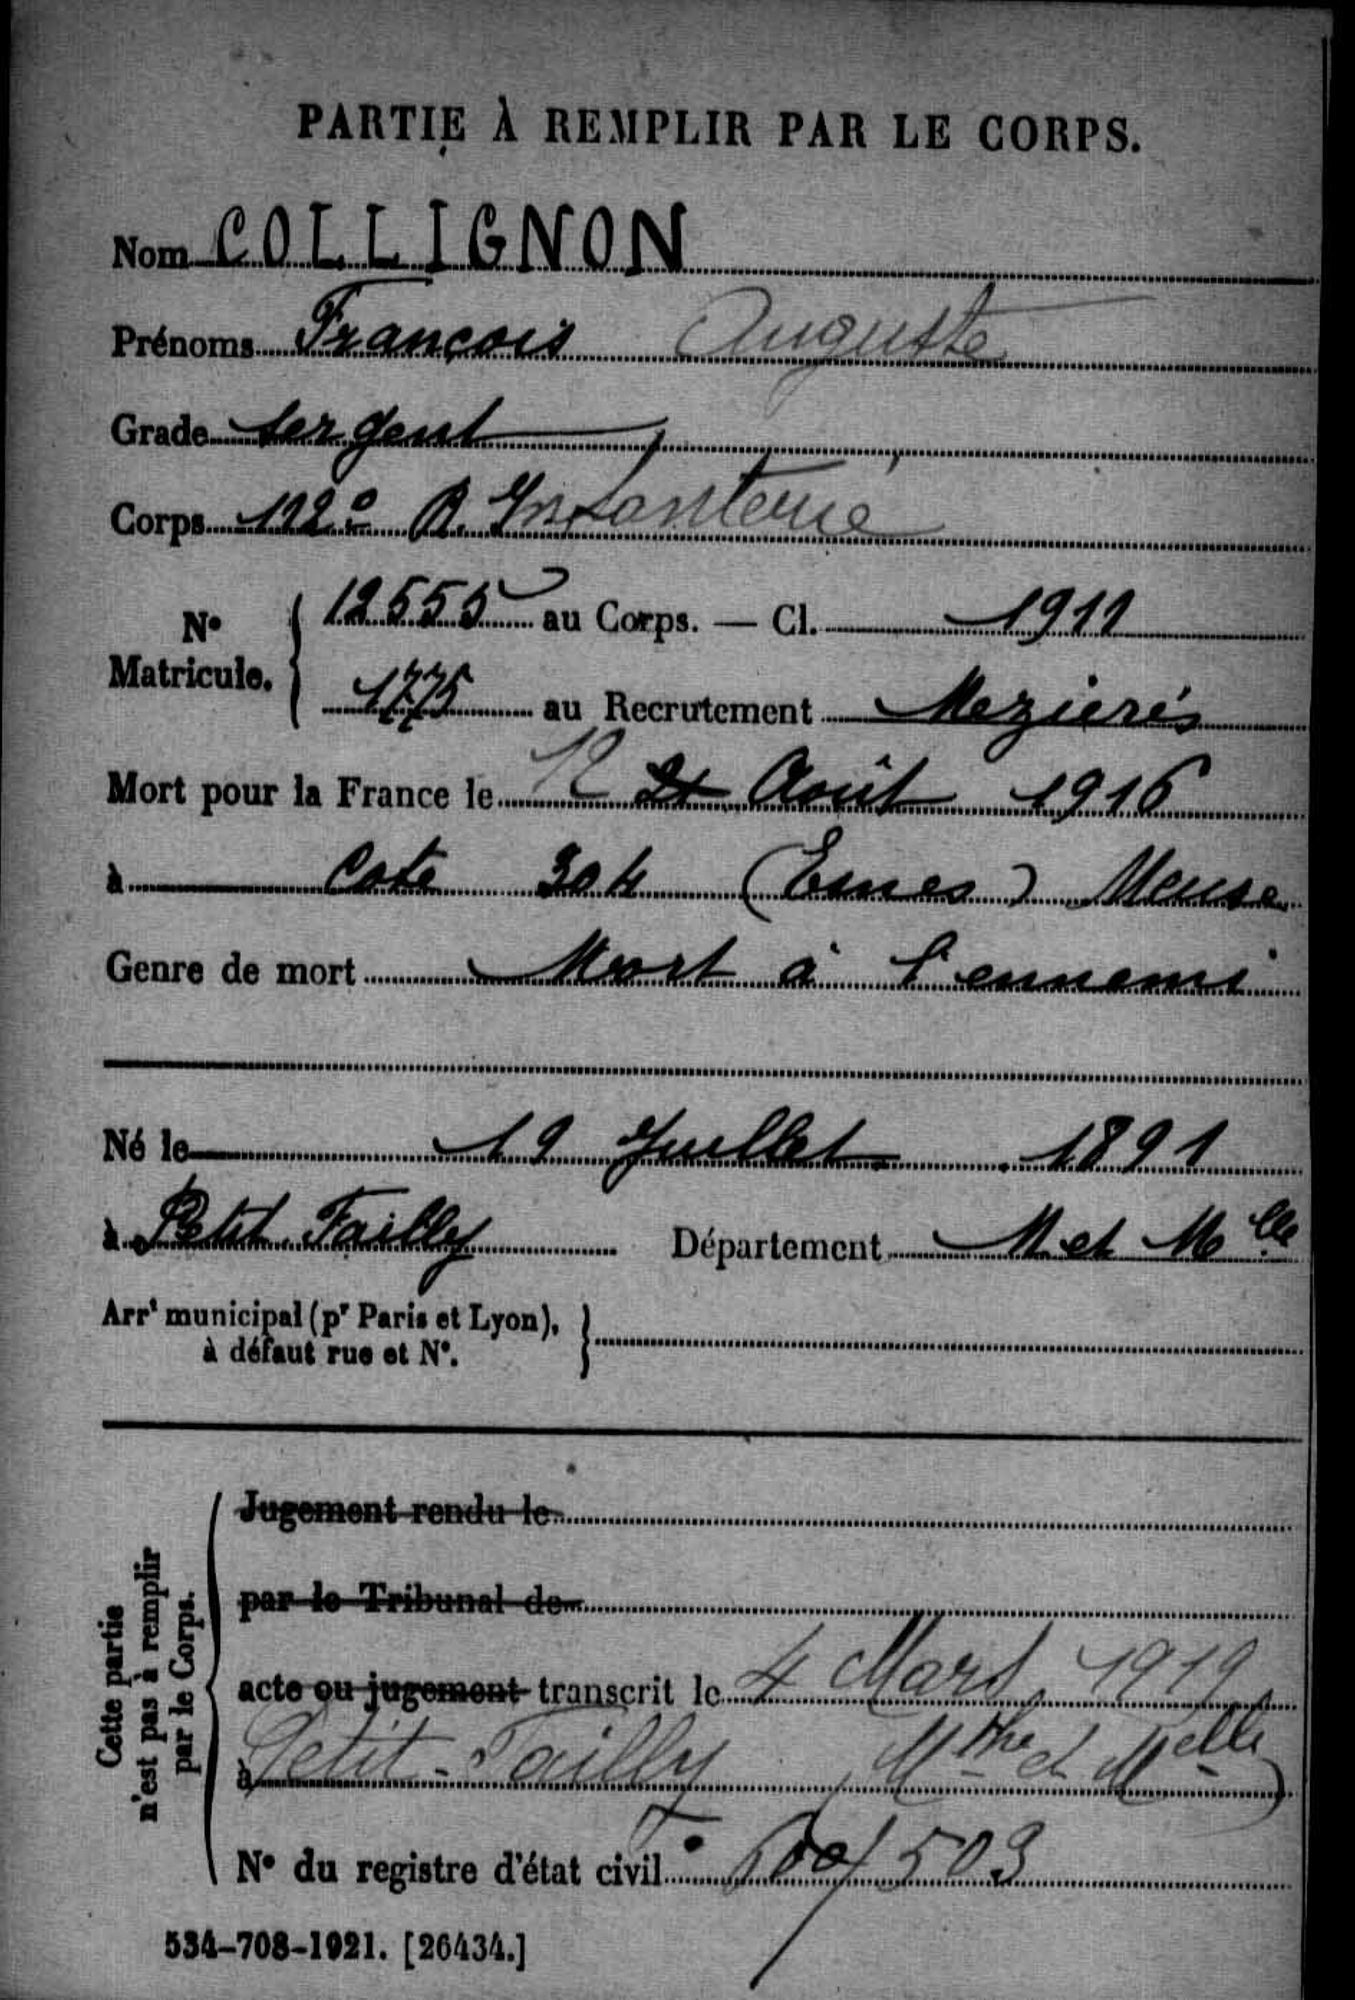 PARTIE À REMPLIR PAR LE CORPS.
Nom COLLIGNON
Prénoms François Auguste
Grade Sergent
Corps 112e R. Infanterie
No Matricule. 12555 au Corps. — Cl. 1911
1775 au Recrutement Mezierés
Mort pour la France le 12 Août 1916
à Cote 304 (Esnes) Meuse
Genre de mort Mort à l'ennemi
Né le 19 Juillet 1891
à Petit Failly Département M et Mlle
Arrt municipal (pr Paris et Lyon),
à défaut rue et No.
Cette partie
n'est pas à remplir
par le Corps.
Jugement rendu le
par le Tribunal de
acte ou jugement transcrit le 4 Mars 1919
à Petit-Failly Mthe et Melle)
No du registre d'état civil 503
534-708-1921. [26434.]